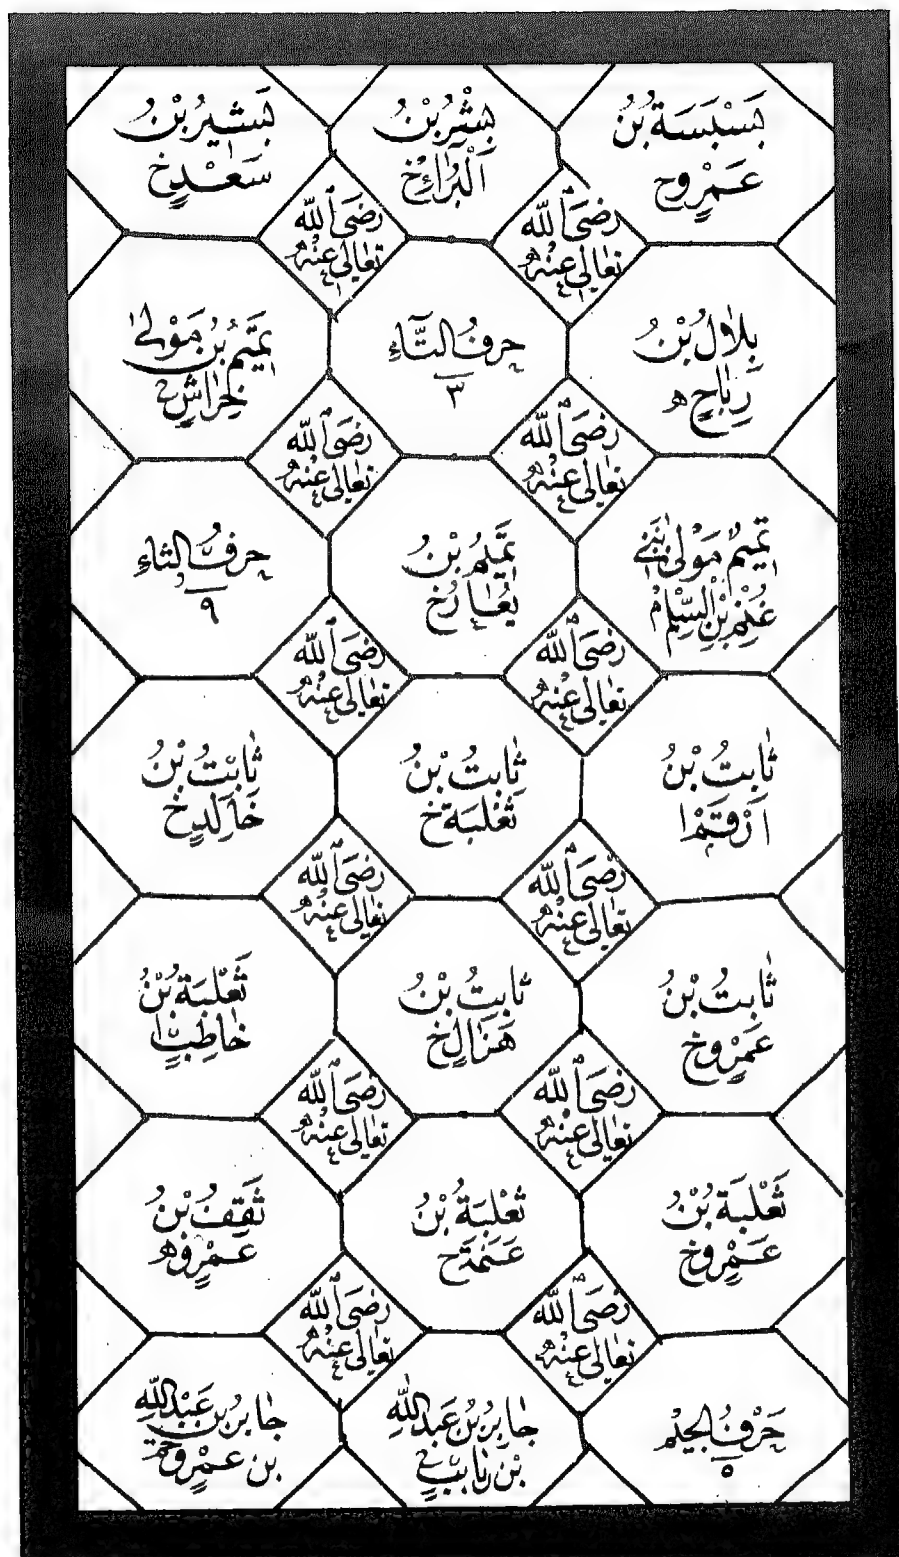 بَسْبَسَةُ بْنُ
عَمْرٍو ح
بِشْرُ بْنُ
الْبَرَاءِ خ
بَشِيرُ بْنُ
سَعْدٍ خ
رَضِیَ الله
تعالیٰ عَنْهُ
رَضِیَ الله
تعالیٰ عَنْهُ
بِلَالُ بْنُ
رِبَاحٍ ه
حرفُ التَّاءِ
٣
تَمِيمُ بْنُ مَوْلیٰ
خِرَاشٍ
رَضِیَ الله
تعالیٰ عَنْهُ
رَضِیَ الله
تعالیٰ عَنْهُ
تَمِيمٌ مَوْلیٰ بَنِي
غُنْمِ بْنِ السِّلْمِ
تَمِيمُ بْنُ
يُعَارَ خ
حرفُ الثاءِ
٩
رَضِیَ الله
تعالیٰ عَنْهُ
رَضِیَ الله
تعالیٰ عَنْهُ
ثَابِتُ بْنُ
اَرْقَمْ ا
ثَابِتُ بْنُ
ثَعْلَبَةَ خ
ثَابِتُ بْنُ
خَالِدٍ خ
رَضِیَ الله
تعالیٰ عَنْهُ
رَضِیَ الله
تعالیٰ عَنْهُ
ثَابِتُ بْنُ
عَمْرٍو خ
ثَابِتُ بْنُ
هَزَالٍ خ
ثَعْلَبَةُ بْنُ
حَاطِبٍ ا
رَضِیَ الله
تعالیٰ عَنْهُ
رَضِیَ الله
تعالیٰ عَنْهُ
ثَعْلَبَةُ بْنُ
عَمْرٍو خ
ثَعْلَبَةُ بْنُ
عَنَمَةَ ح
ثَقِفُ بْنُ
عَمْرٍو ه
رَضِیَ الله
تعالیٰ عَنْهُ
رَضِیَ الله
تعالیٰ عَنْهُ
حَرْفُ الجِيْمْ
٥
جَابِرُ بْنُ عَبْدِاللّٰهِ
بْنِ رِيَابٍ
جَابِرُ بْنُ عَبْدِاللّٰهِ
بن عَمْرٍو خ